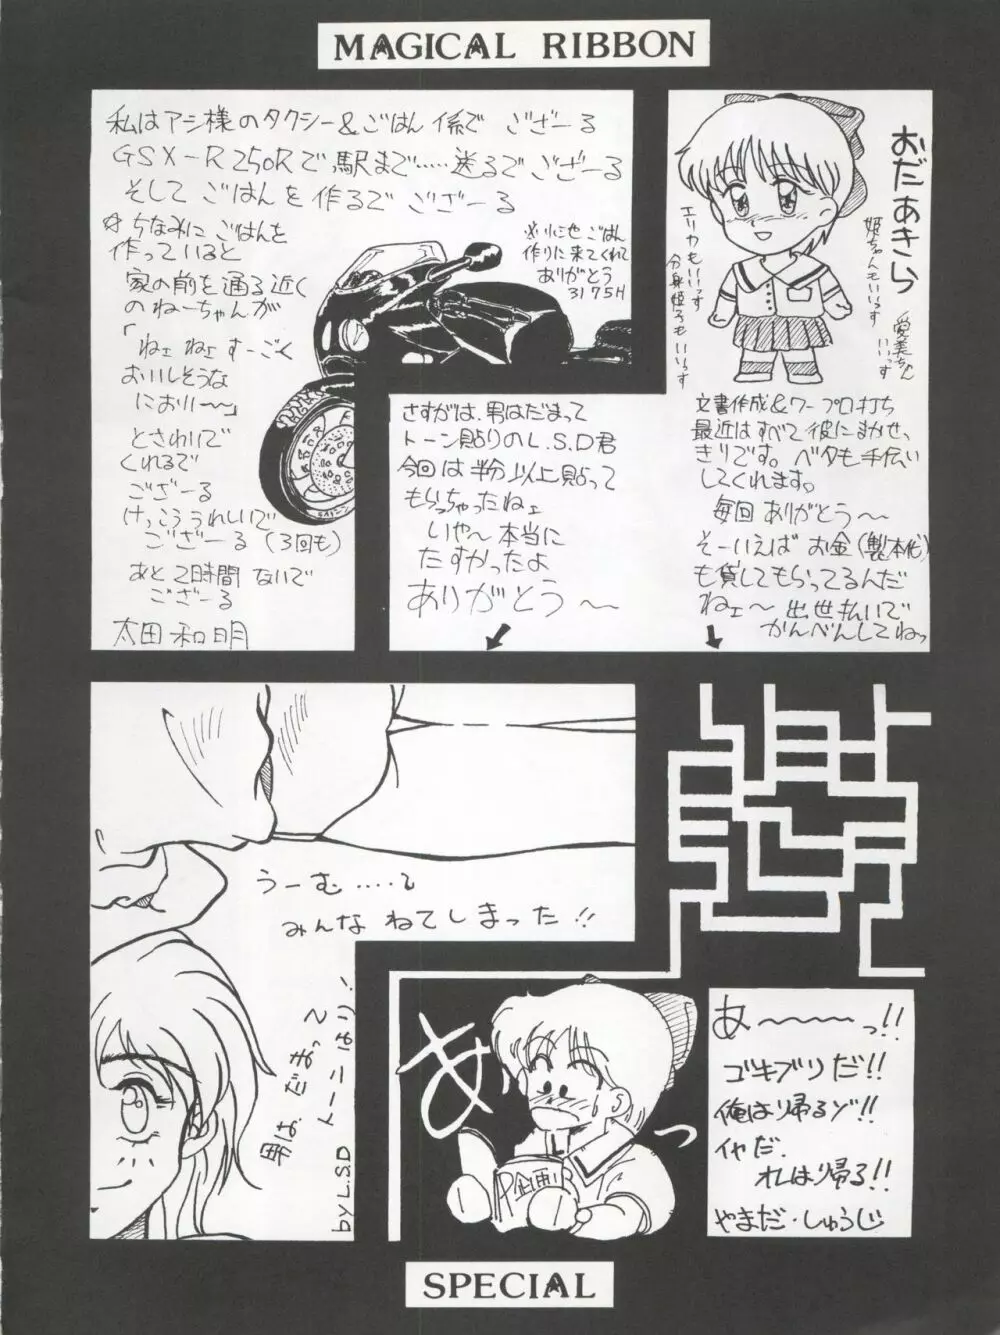 MAGICAL RIBBON
私はアシ様のタクシー&ごはん係で ござーる
GSX-R250Rで駅まで‥‥‥送るで ござーる
そして ごはんを 作るで ござーる
ちなみに ごはんを
作っていると
家の前を通る近く
のねーちゃんが
「ねェ ねェ すーごく
おいしそうな
におい〜」
とさわいで
くれるで
ござーる
けっこう うれしいで
ござーる (3回も)
あと 2時間 ないで
ござーる
太田 和明
ごはん
作りに来てくれて
ありがとう
3175H
おだあきら
姫ちゃんもいいっす
愛美ちゃん
いいっす
エリカもいいっす
分身姫子も いいっす
さすがは、男はだまって
トーン貼りのL.S.D君
今回は半分以上貼って
もらっちゃったねェ
いや〜本当に
たすかったよ
ありがとう〜
文書作成&ワープロ打ち
最近はすべて彼にまかせ、
きりです。ベタも手伝い
してくれます。
毎回 ありがとう〜
そーいえば お金(製本代)
も貸してもらってるんだ
ねェ〜 出世払いで
かんべんしてねっ
うーむ‥‥‥
みんな ねてしまった!!
男は、だまって
トーンはり!
by L.S.D
あっ
P企画
あ〜〜〜〜っ!!
ゴキブリだ!!
俺は帰るゾ!!
イヤだ.
オレは帰る!!
やまだ・しゅうじ
SPECIAL